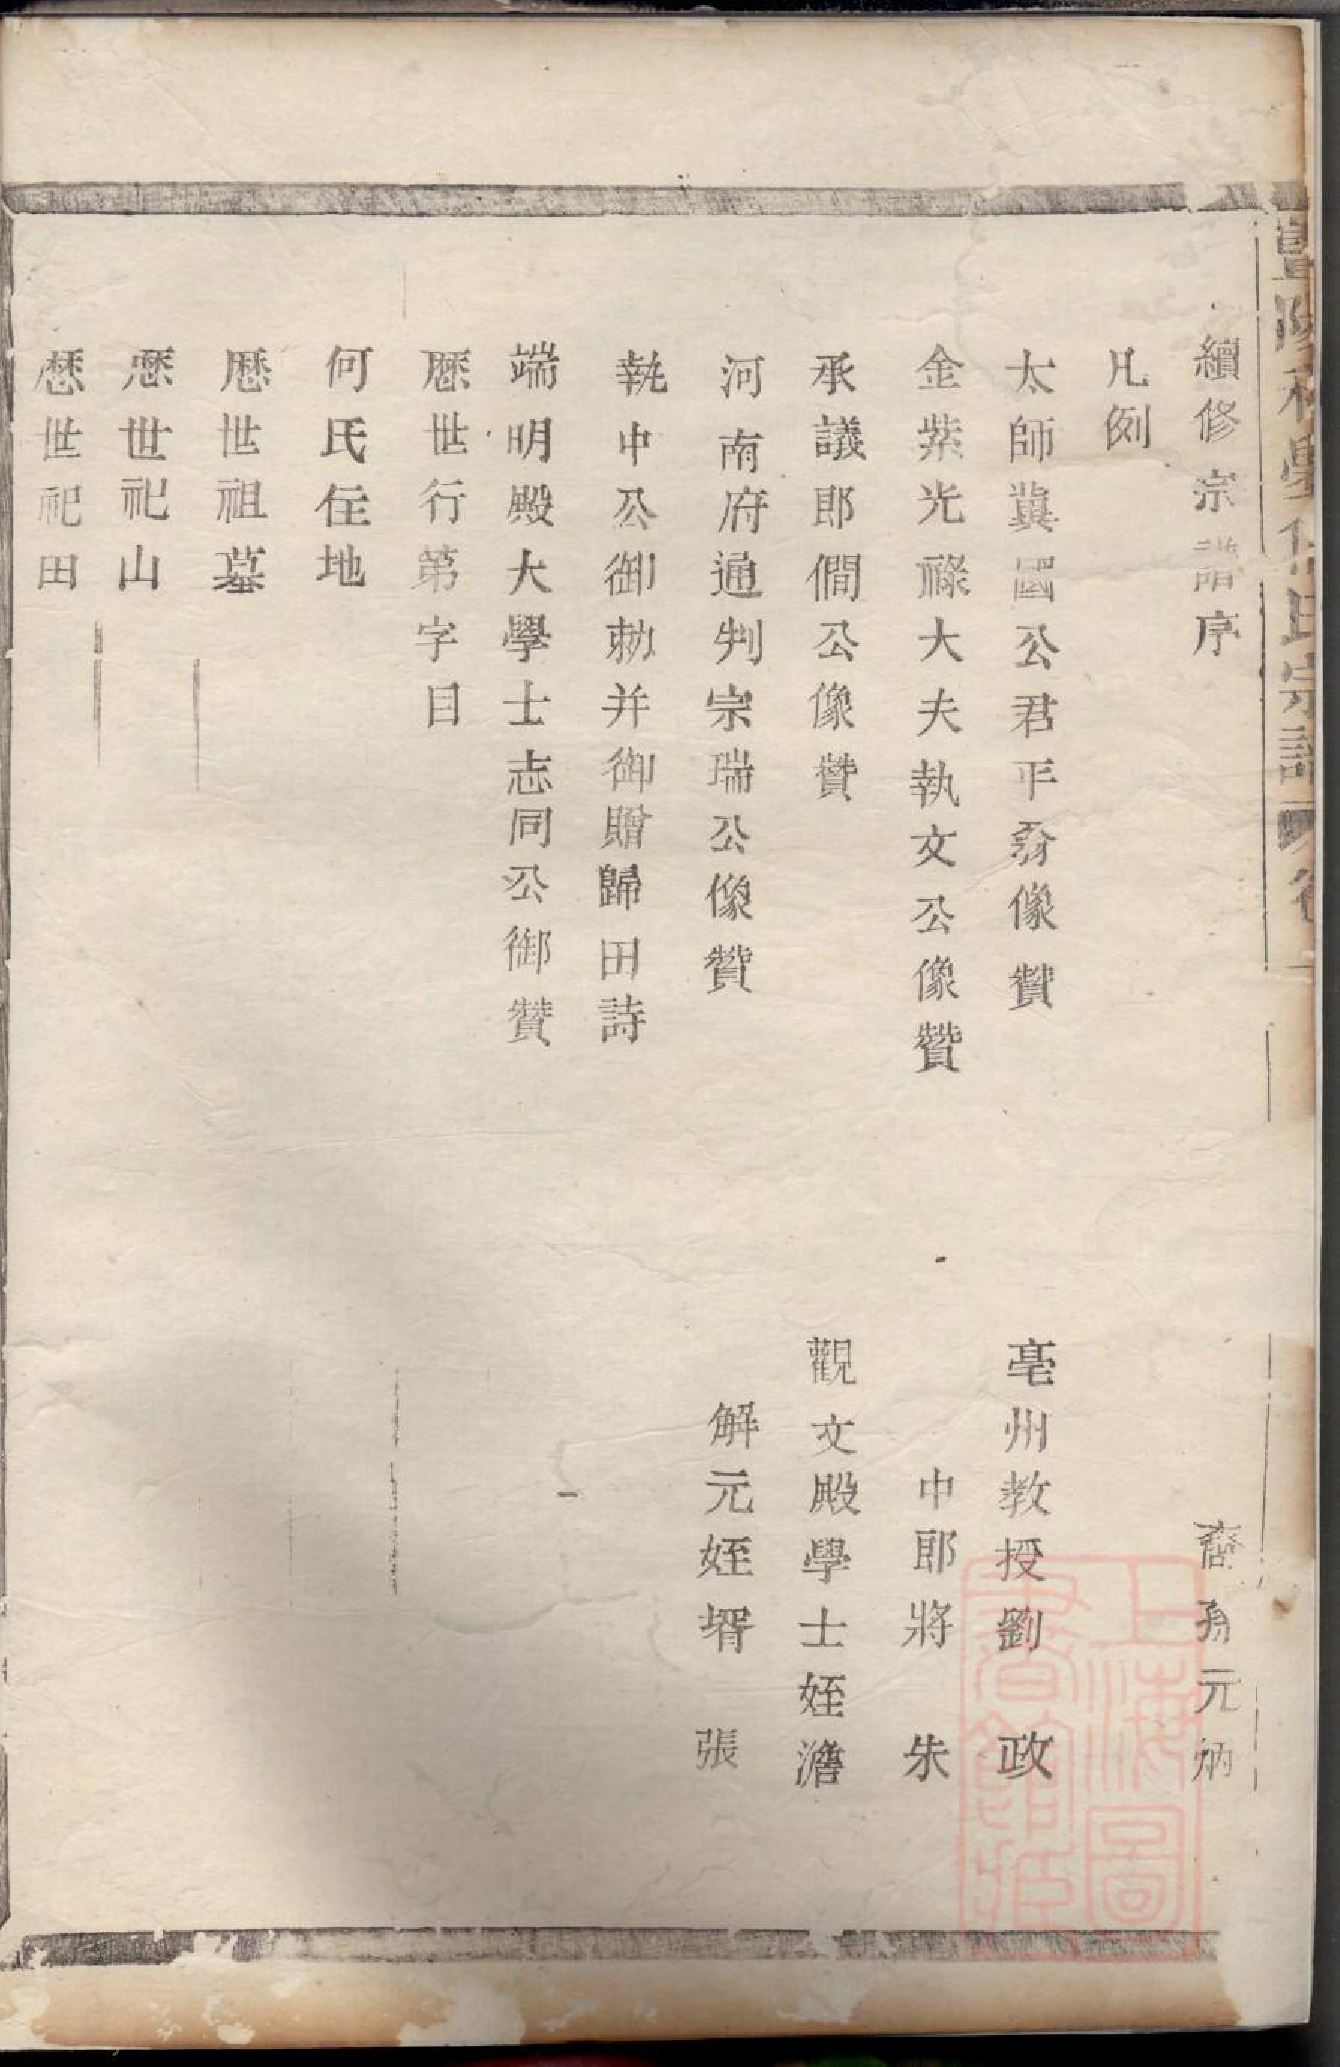 暨陽 何氏宗譜 卷
續修宗譜序 裔孫元炳
凡例
太師冀國公君平翁像贊 亳州教授劉政
金紫光祿大夫執文公像贊 中郎將朱
承議郎僩公像贊 觀文殿學士姪澹
河南府通判宗瑞公像贊 解元姪壻張
執中公御勅并御贈歸田詩
端明殿大學士志同公御贊
歷世行第字目
何氏住地
歷世祖墓
歷世祀山
歷世祀田
上海圖書館藏